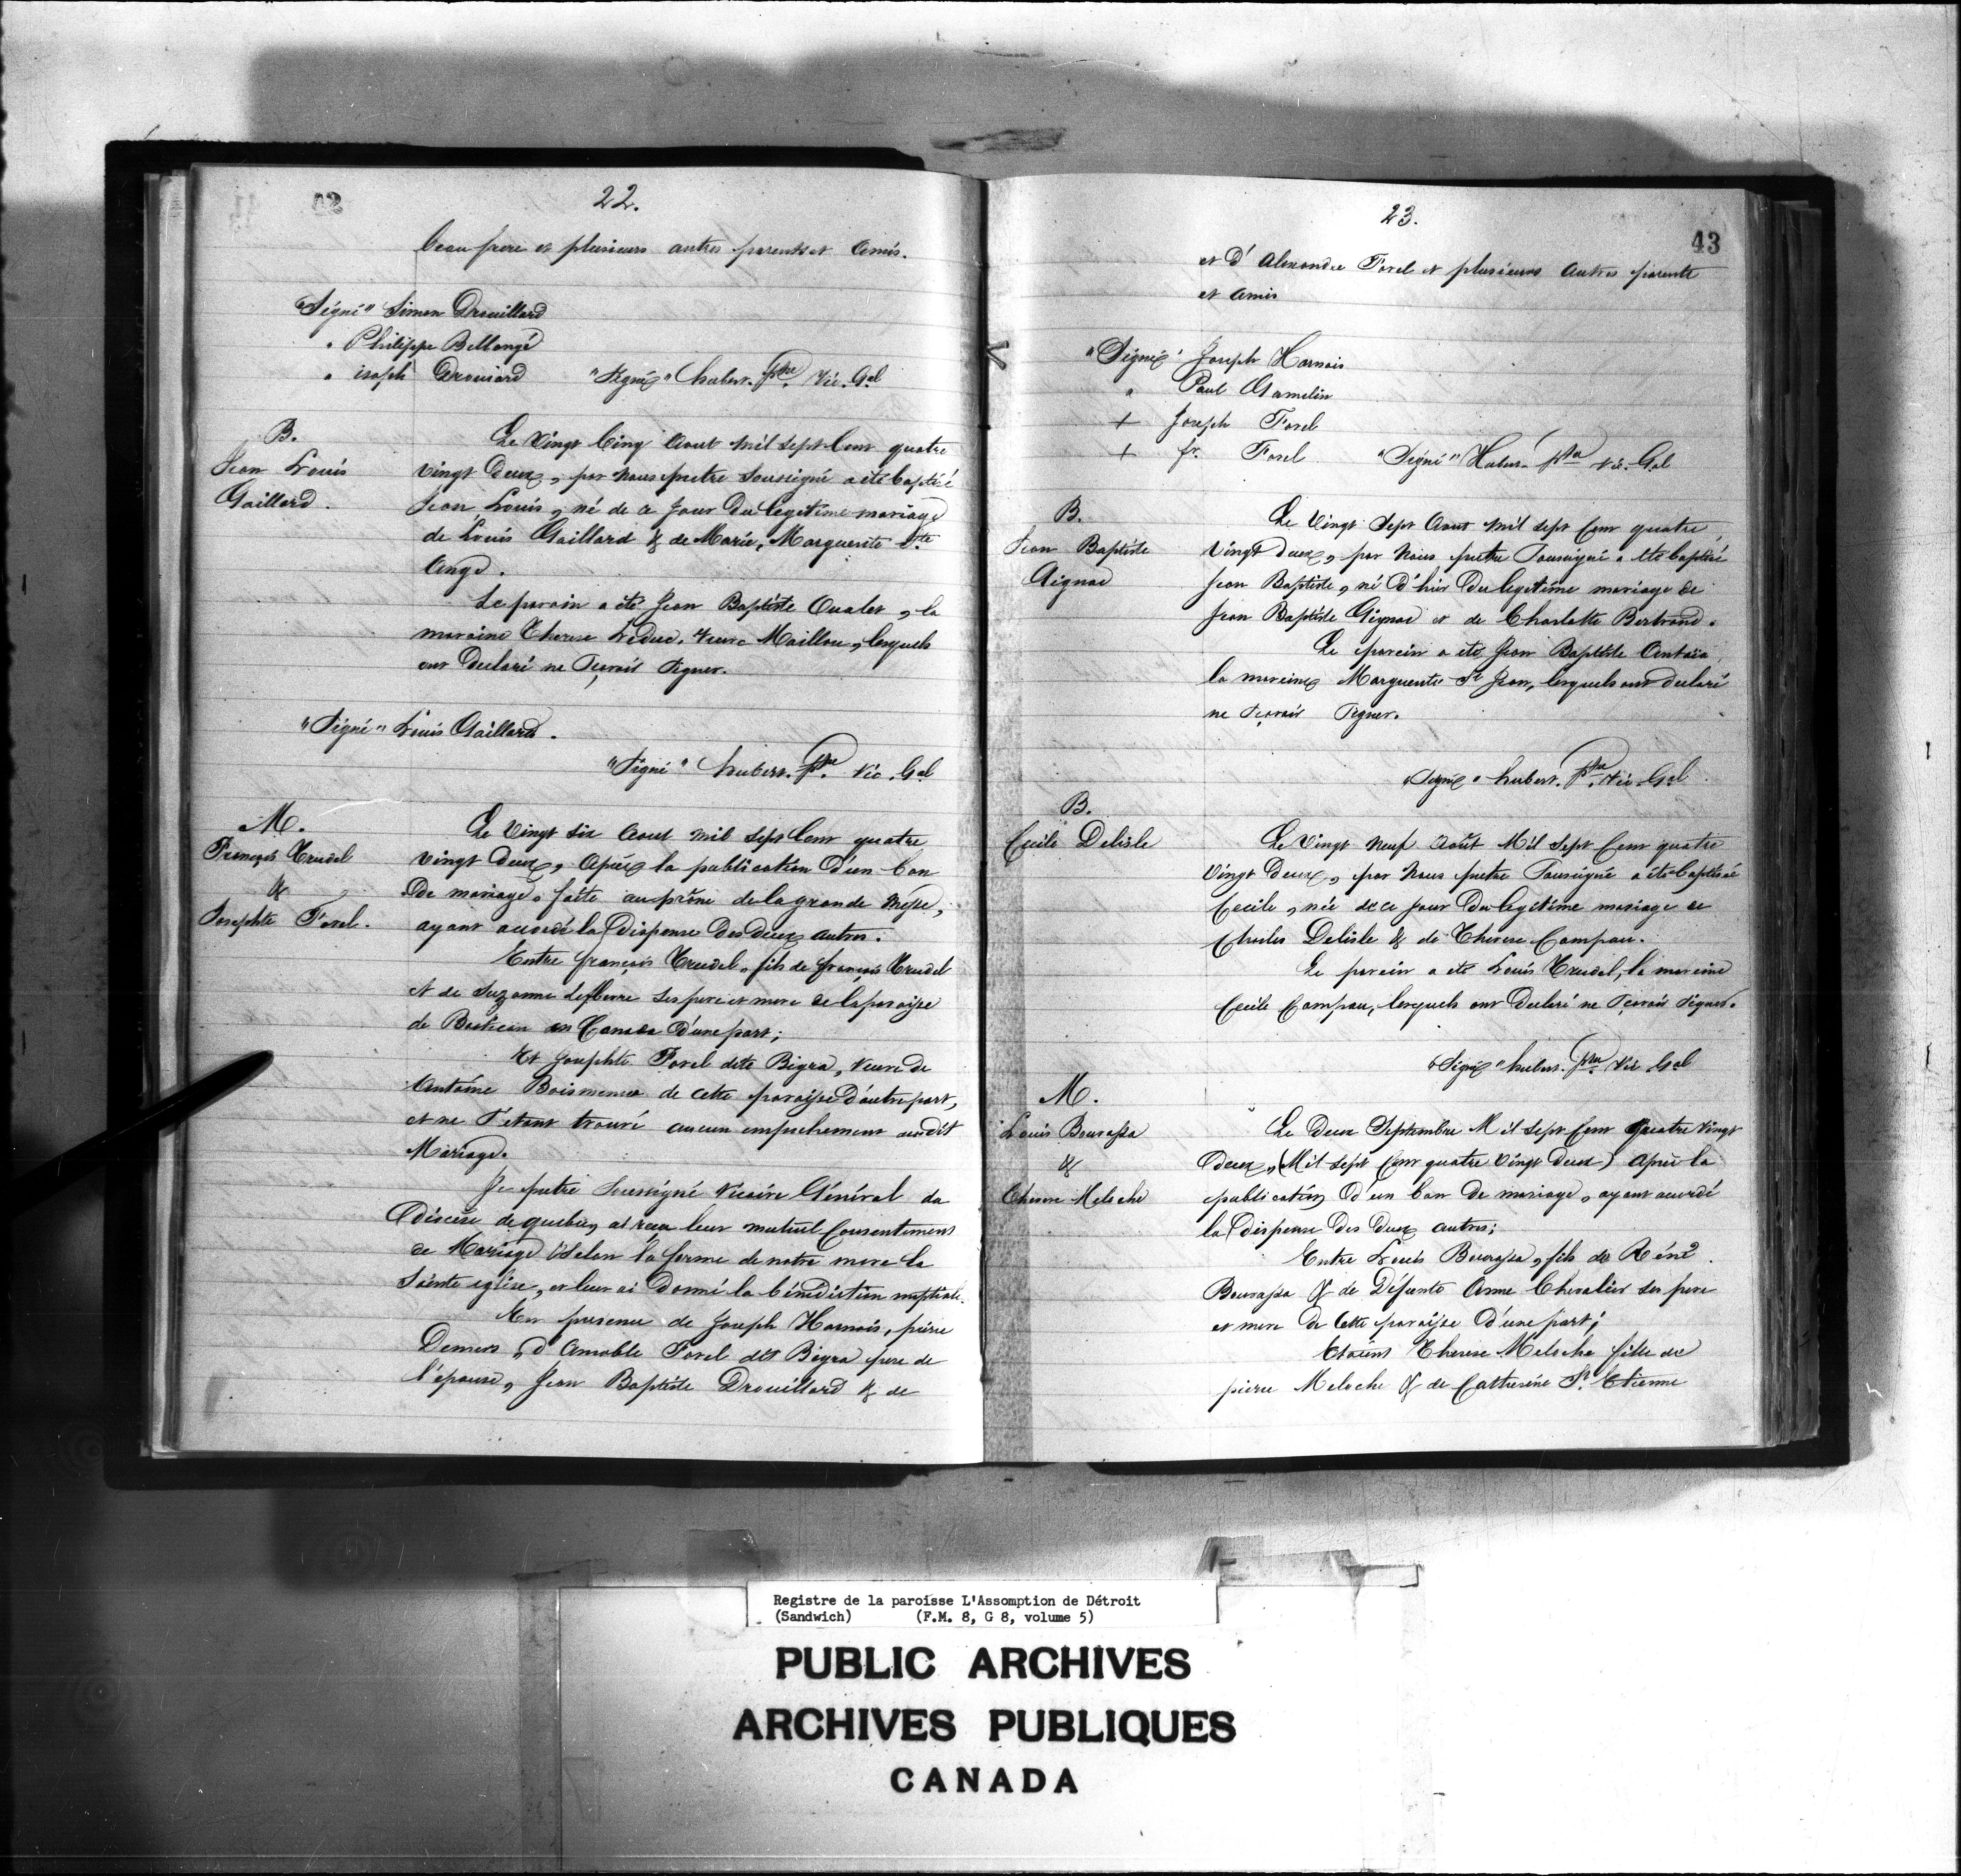 22.
beau frere et plusieurs autres parents et Amis.
"Signé" Simon Drouillard
" Philippe Bellangé
" isoph Drouiard "Signé" hubert. ptre. Vic. Gal
B.
Jean Louis
Gaillard.
Le Vingt Cinq Aout Mil Sept Cent quatre
vingt Deux, par Nous pretre Soussigné a été baptisé
Jean Louis, né de ce Jour Du legitime mariage
de Louis Gaillard & de Marie, Marguerite Ste
Ange.
Le parain a été Jean Baptiste Oualet, la
maraine Therese Leduc. Veuve Maillou, lesquels
ont Declaré ne Sçavoir Signer.
"Signé" Louis Gaillard.
"Signé" hubert. ptre. Vic. Gal
M.
François Trudel
&
Josephte Forel.
Le Vingt Six Aout Mil Sept Cent quatre
vingt Deux, Après la publication D'un ban
De mariage, faite au prône de la grande Messe,
ayant accordé la Dispense Des deux autres:
Entre françois Trudel, fils de françois Trudel
et de Suzanne Lefbevre Ses pere et mere de la paroisse
de Batiscan en Canada D'une part;
Et Josephte Forel dite Bigra, Veuve de
Antoine Boismenu de cette paroisse D'autre part,
et ne S'etant trouvé aucun empechement audit
Mariage.
Je pretre Soussigné Vicaire Général du
Diocèse de quebec, ai reçu leur mutuel Consentement
de Mariage Selon la forme de notre mere la
Sainte eglise, et leur ai Donné la bénédiction nuptiale.
En presence de Joseph Harnois, pierre
Demers, d'Amable Forel dit Bigra pere de
l'épouse, Jean Baptiste Drouillard & de
23.
43
et D'Alexandre Forel et plusieurs Autres parents
et Amis
"Signé" Joseph Harnois
" Paul Gamelin
+ Joseph Forel
+ fr. Forel "Signé" Hubert ptre Vic. Gal
B.
Jean Baptiste
Gignac
Le Vingt Sept Aout Mil Sept Cent quatre
Vingt deux, par Nous pretre Soussigné a été baptisé
Jean Baptiste, né D'hier Du legitime mariage de
Jean Baptiste Gignac et de Charlotte Bertrand.
Le parein a été Jean Baptiste Antaïa
la mareine Marguerite St Jean, lesquels ont declaré
ne Sçavoir Signer.
"Signé" hubert. ptre. Vic. Gal
B.
Cecile Delisle
Le Vingt Neuf Août Mil Sept Cent quatre
Vingt Deux, par Nous pretre Soussigné a été baptisée
Cecile, née de ce Jour Du legitime mariage de
Charles Delisle & de Therese Campau.
Le parein a été Louis Trudel, la mareine
Cecile Campau, lesquels ont Declaré ne Sçavoir Signer.
"Signé" hubert. ptre Vic Gal
M.
Louis Bourassa
&
Therese Meloche
Le Deux Septembre Mil Sept Cent Quatre Vingt
Deux, (Mil Sept Cent quatre Vingt Deux) Après la
publication D'un ban De mariage, ayant accordé
la Dispense Des Deux autres;
Entre Louis Bourassa, fils de Réné
Bourassa & de Défunte Anne Chevalier Ses pere
et mere De Cette paroisse D'une part;
Therese Meloche fille de
pierre Meloche & de Catherine St. Etienne
Registre de la paroisse L'Assomption de Détroit
(Sandwich) (F.M. 8, G 8, volume 5)
PUBLIC ARCHIVES
ARCHIVES PUBLIQUES
CANADA